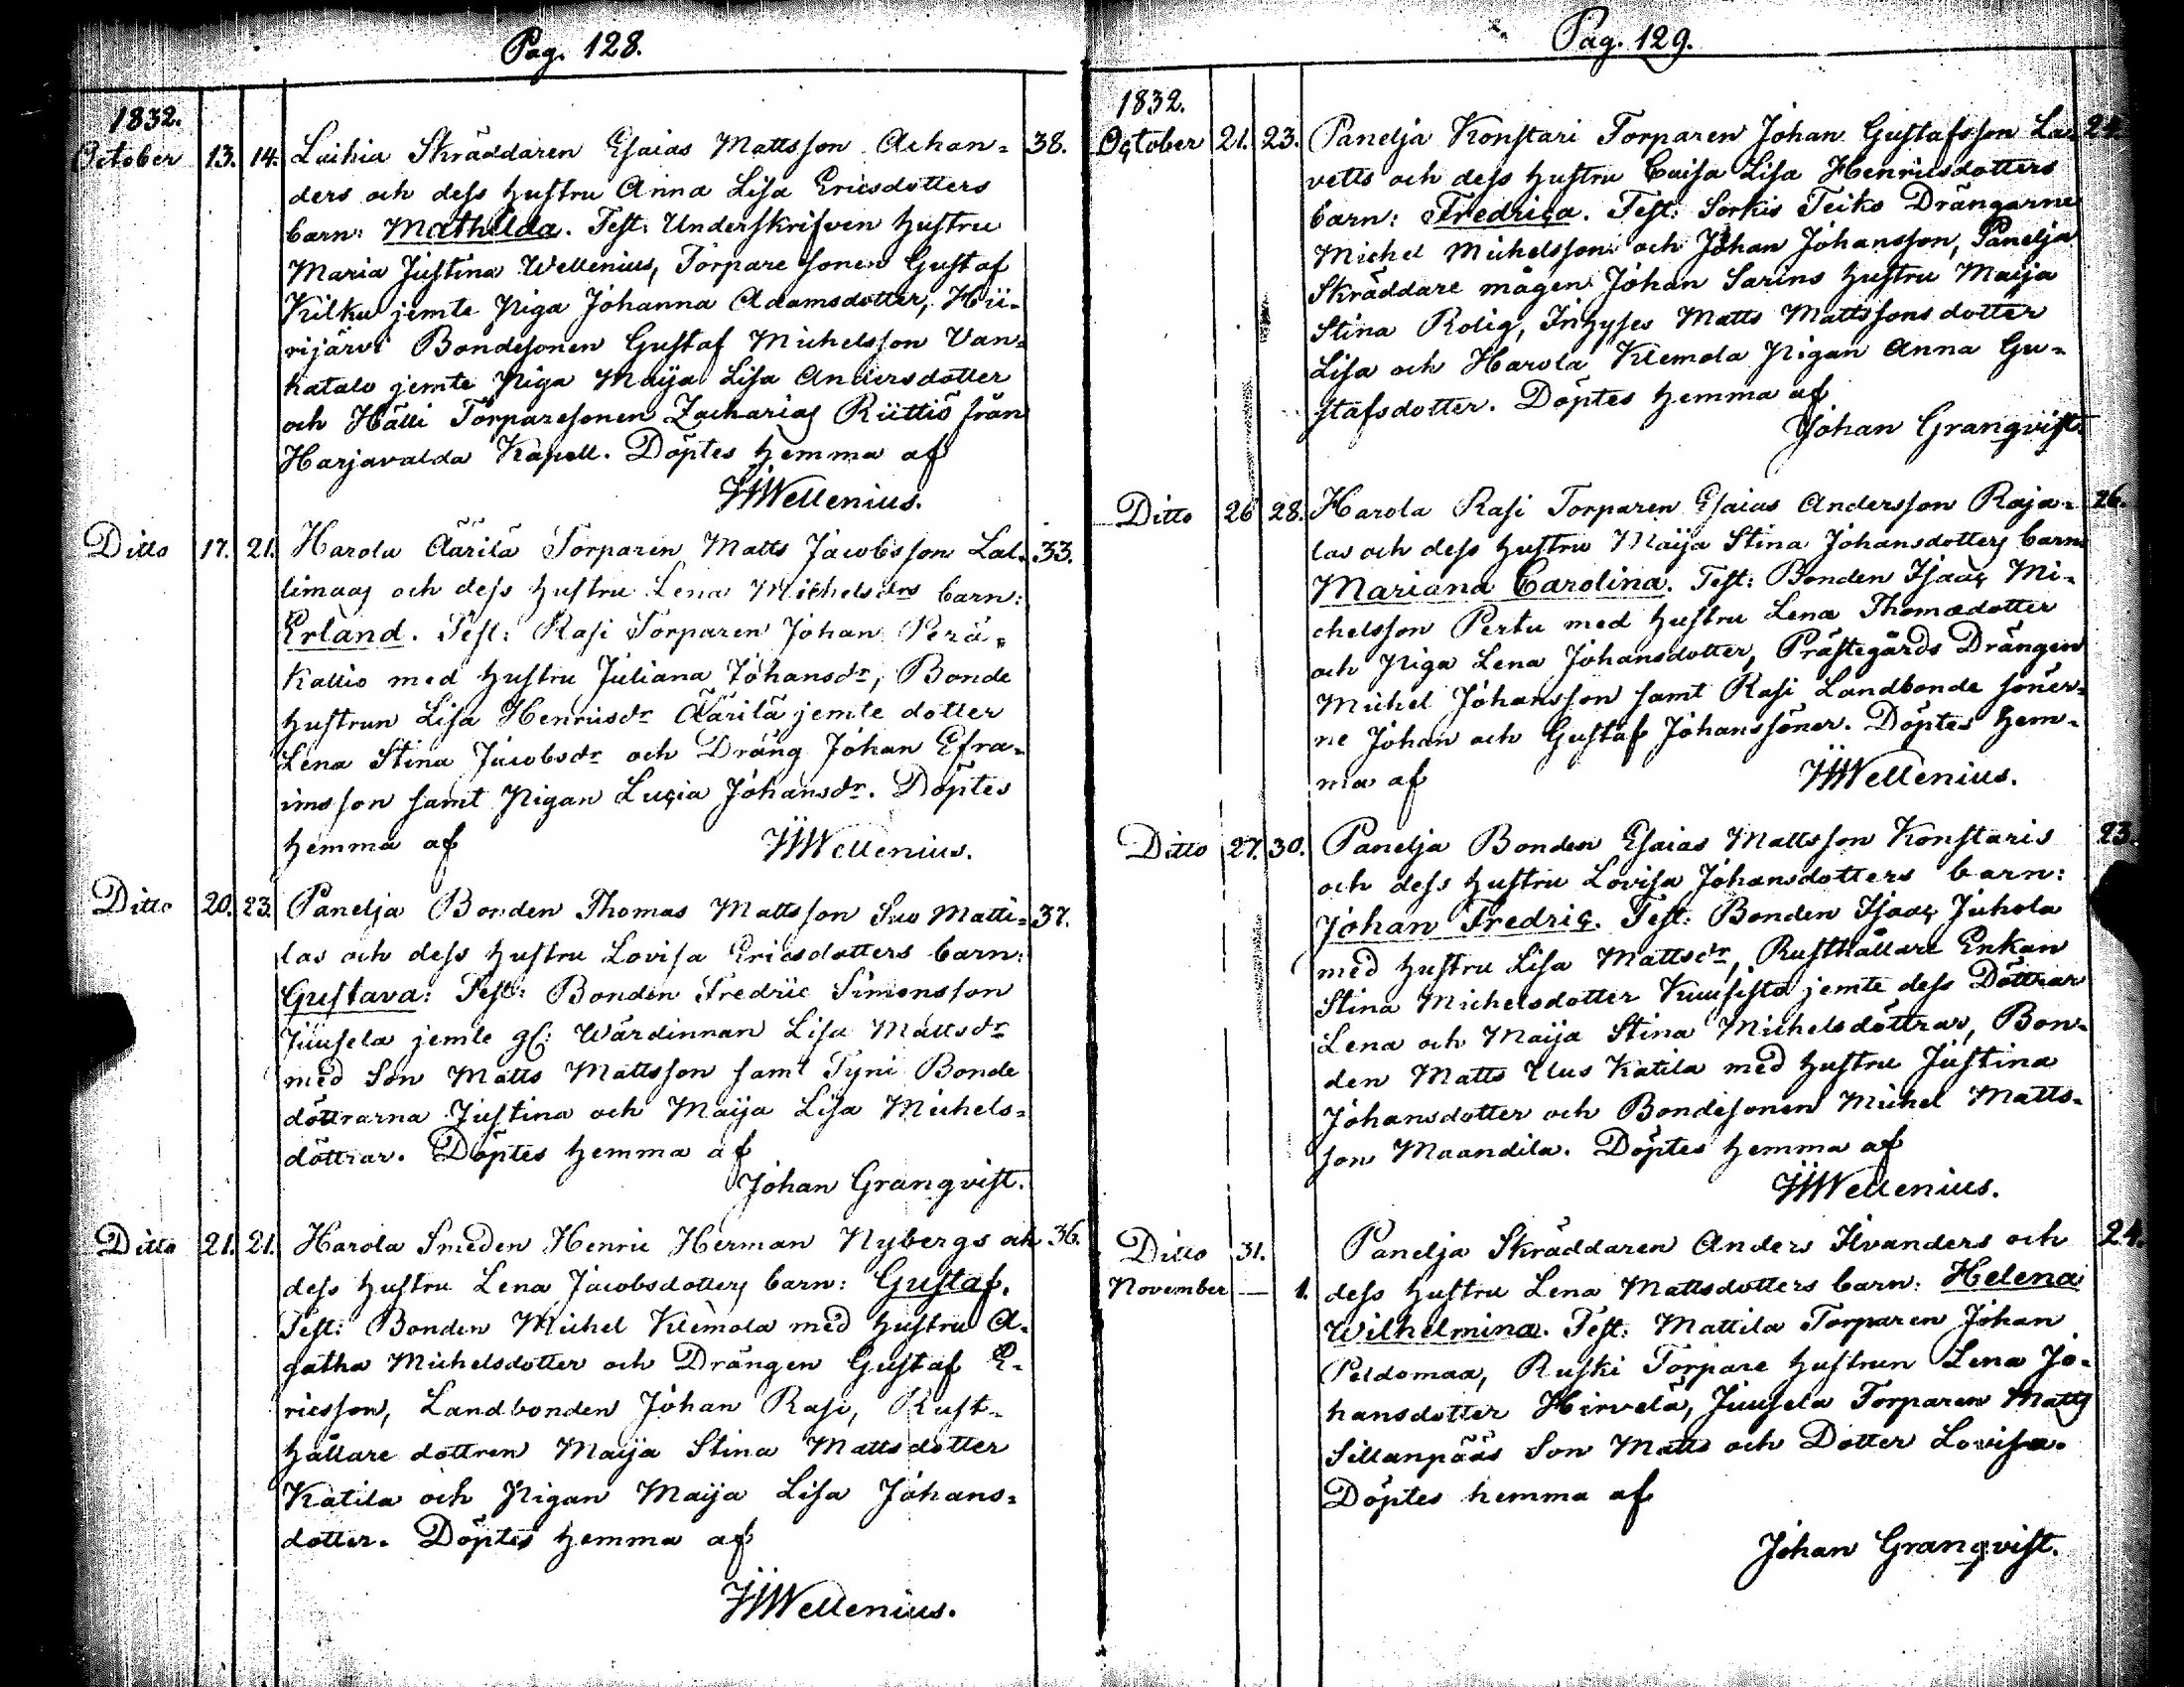 Pag. 128.
1832.
October 13. 14. Luihia Skräddaren Esaias Mattsson Achan= 38.
ders och dess hustru Anna Lisa Ericsdotters
barn: Mathilda. Test: Underskrifven hustru
Maria Justina Wellenius, Torpare sonen Gustaf
Kilku jemte Piga Johanna Adamsdotter, Hii=
rijärvi Bondesonen Gustaf Michelsson Van=
hatalo jemte Piga Maija Lisa Andersdotter
och Hälli Torparesonen Zacharias Riittiö från
Harjavalda Kapell. Döptes hemma af
Wellenius.
Ditto 17. 21. Harola Äärilä Torparen Matts Jacobsson Lal= 33.
limaas och dess hustru Lena Michelsdrs barn:
Erland. Test: Rasi Torparen Johan Perä=
kallio med hustru Juliana Johansdr, Bonde
hustrun Lisa Henricsdr Äärilä jemte dotter
Lena Stina Jacobsdr och Dräng Johan Efra=
imsson samt Pigan Lucia Johansdr. Döptes
hemma af Wellenius.
Ditto 20. 23. Panelja Bonden Thomas Mattsson Suo Matti= 37.
las och dess hustru Lovisa Ericsdotters barn:
Gustava: Test: Bonden Fredric Simonsson
Juusela jemte gl: Wärdinnan Lisa Mattsdr
med Son Matts Mattsson samt Tyni Bonde
döttrarna Justina och Maija Lisa Michels=
döttrar. Döptes hemma af
Johan Granqvist.
Ditto 21. 21. Harola Smeden Henric Herman Nybergs och 36.
dess hustru Lena Jacobsdotters barn: Gustaf.
Test: Bonden Michel Klemola med hustru A=
gatha Michelsdotter och Drängen Gustaf E=
ricsson, Landbonden Johan Rasi, Rust=
hållare dottren Maija Stina Mattsdotter
Katila och Pigan Maija Lisa Johans=
dotter. Döptes hemma af
Wellenius.
Pag. 129.
1832.
October 21. 23. Panelja Konstari Torparen Johan Gustafsson La= 24.
vetts och dess hustru Caisa Lisa Henricsdotters
barn: Fredrica. Test: Sorkis Teiko Drängarne
Michel Michelsson och Johan Johansson, Panelja
Skräddare mågen Johan Sarins hustru Maija
Stina Rolig, Inhyses Matts Mattssons dotter
Lisa och Harola Klemola Pigan Anna Gu=
stafsdotter. Döptes hemma af
Johan Granqvist.
Ditto 26 28. Harola Rasi Torparen Esaias Andersson Raja= 26.
las och dess hustru Maija Stina Johansdotters barn
Mariana Carolina. Test: Bonden Isaac Mi=
chelsson Pertu med hustru Lena Thomædotter
och Piga Lena Johansdotter, Prästegårds Drängen
Michel Johansson samt Rasi Landbonde söner=
ne Johan och Gustaf Johanssöner. Döptes hem=
ma af Wellenius.
Ditto 27. 30. Panelja Bonden Esaias Mattsson Konstaris 23.
och dess hustru Lovisa Johansdotters barn:
Johan Fredric. Test: Bonden Isaac Juhola
med hustru Lisa Mattsdr, Rusthållare Enkan
Stina Michelsdotter Kuusisto jemte dess Döttrar
Lena och Maija Stina Michelsdöttrar, Bon=
den Matts Uus Katila med hustru Justina
Johansdotter och Bondesonen Michel Matts=
son Maandila. Döptes hemma af
Wellenius.
Ditto 31. Panelja Skräddaren Anders Ilvanders och 24.
November — 1. dess hustru Lena Mattsdotters barn: Helena
Wilhelmina. Test: Mattila Torparen Johan
Peldomaa, Ruski Torpare hustrun Lena Jo=
hansdotter Hirvelä, Juusela Torparen Matts
Sillanpääs Son Matts och Dotter Lovisa.
Döptes hemma af
Johan Granqvist.